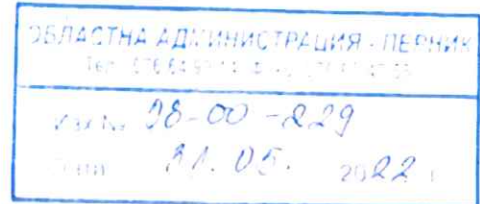 ОБЛАСТНА АДМИНИСТРАЦИЯ - ПЕРНИК
Изх.№ 98-00-229
31.05. 2022 г.